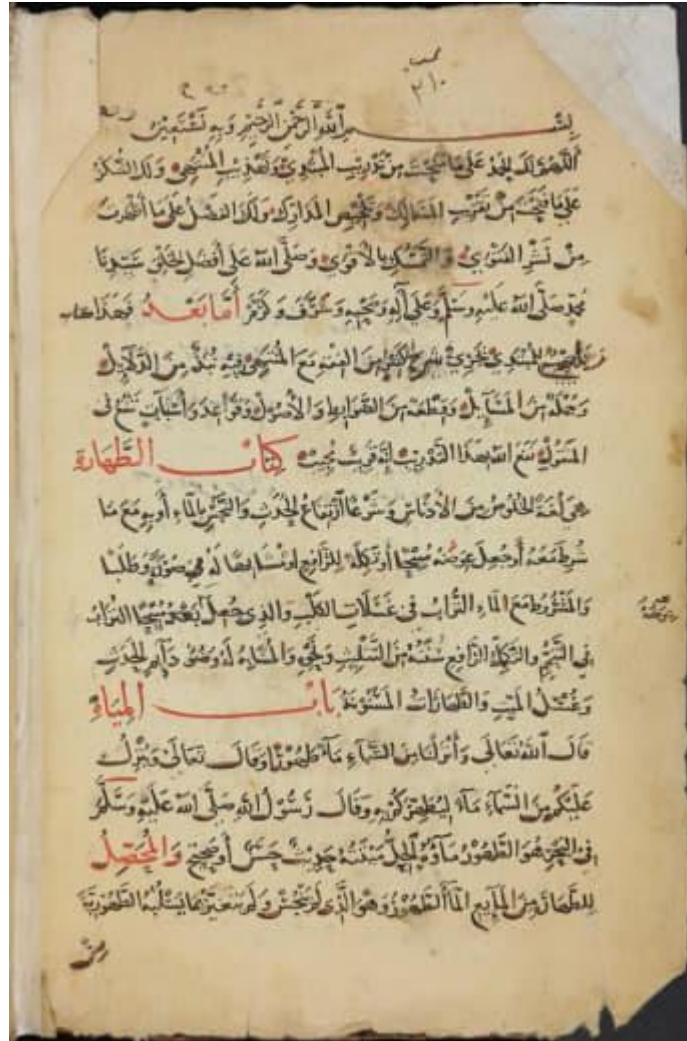 ٢١٠
بسم الله الرحمن الرحيم وبه نستعين
اللهم لك الحمد على ما منحت من تدريب المبتدي وتهذيب المنتهي ولك الشكر
على ما فتحت من تقريب المسالك وتلخيص المدارك ولك الفضل على ما أظهرت
من نشر الفتوي والتمسك بالأقوى وصلى الله على أفضل الخلق سيدنا
محمد صلى الله عليه وسلم وعلى آله وصحبه وشرف وكرم أما بعد فهذا كتاب
المبتدي من الفقه مع المنتهي فيه نبذ من الدلايل
وجملة من المسايل وقطعة من الضوابط والأصول وقواعد وأسباب
نفع الله بهذا التدريب إنه قريب مجيب كتاب الطهارة
هي لغة الخلوص من الأدناس وشرعا ارتفاع الحدث والنجس بالماء أو به مع ما
شرط معه أو جعل عوضه مبيحا أو تكملة للرافع او مشابها له في صورة وطلبا
والمشروط مع الماء التراب في غسلات الكلب والذي جعل بعده مبيحا التراب
في التيمم والتكملة الرافع سنة من التثليث ونحوه والمشابه له وضوء دايم الحدث
وغسل الميت والطهارات المسنونة باب المياه
قال الله تعالى وأنزلنا من السماء ماء طهورا وقال تعالى وينزل
عليكم من السماء ماء ليطهركم به وقال رسول الله صلى الله عليه وسلم
في البحر هو الطهور ماؤه الحل ميتته حديث حسن أو صحيح والمحصل
للطهارة من المايع الماء الطهور وهو الذي لم ينجس ولم يتغير بما يسلبه الطهورية
من